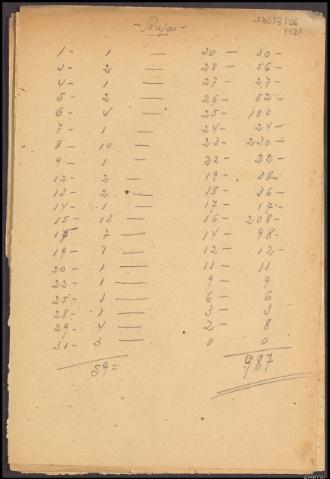 - Bajas -
1 - 1 — 30 — 30 -
3 - 2 — 28 — 56 -
4 - 1 — 27 - 27 -
5 - 2 — 26 - 52 -
6 - 4 — 25 - 100
7 - 1 — 24 - 24 -
8 - 10 — 23 - 230 -
9 - 1 — 22 - 22 -
12 - 2 — 19 - 38 -
13 - 2 — 18 - 36 -
14 - 1 — 17 - 17 -
15 - 13 — 16 - 208 -
17 - 7 — 14 - 98 -
19 - 1 — 12 - 12 -
20 - 1 — 11 - 11
22 - 1 — 9 - 9
25 - 1 — 6 - 6
28 - 1 — 3 - 3
29 - 4 — 2 - 8
31 - 3 — 0 0
59 = 987